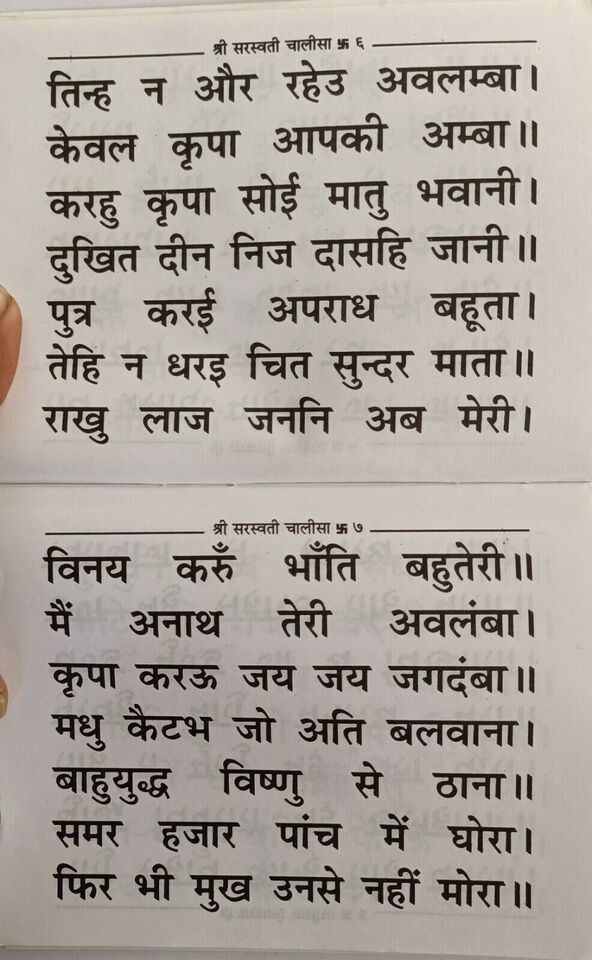 श्री सरस्वती चालीसा 卐 ६
तिन्ह न और रहेउ अवलम्बा।
केवल कृपा आपकी अम्बा॥
करहु कृपा सोई मातु भवानी।
दुखित दीन निज दासहि जानी॥
पुत्र करई अपराध बहूता।
तेहि न धरइ चित सुन्दर माता॥
राखु लाज जननि अब मेरी।
श्री सरस्वती चालीसा 卐 ७
विनय करुँ भाँति बहुतेरी॥
मैं अनाथ तेरी अवलंबा।
कृपा करऊ जय जय जगदंबा॥
मधु कैटभ जो अति बलवाना।
बाहुयुद्ध विष्णु से ठाना॥
समर हजार पांच में घोरा।
फिर भी मुख उनसे नहीं मोरा॥